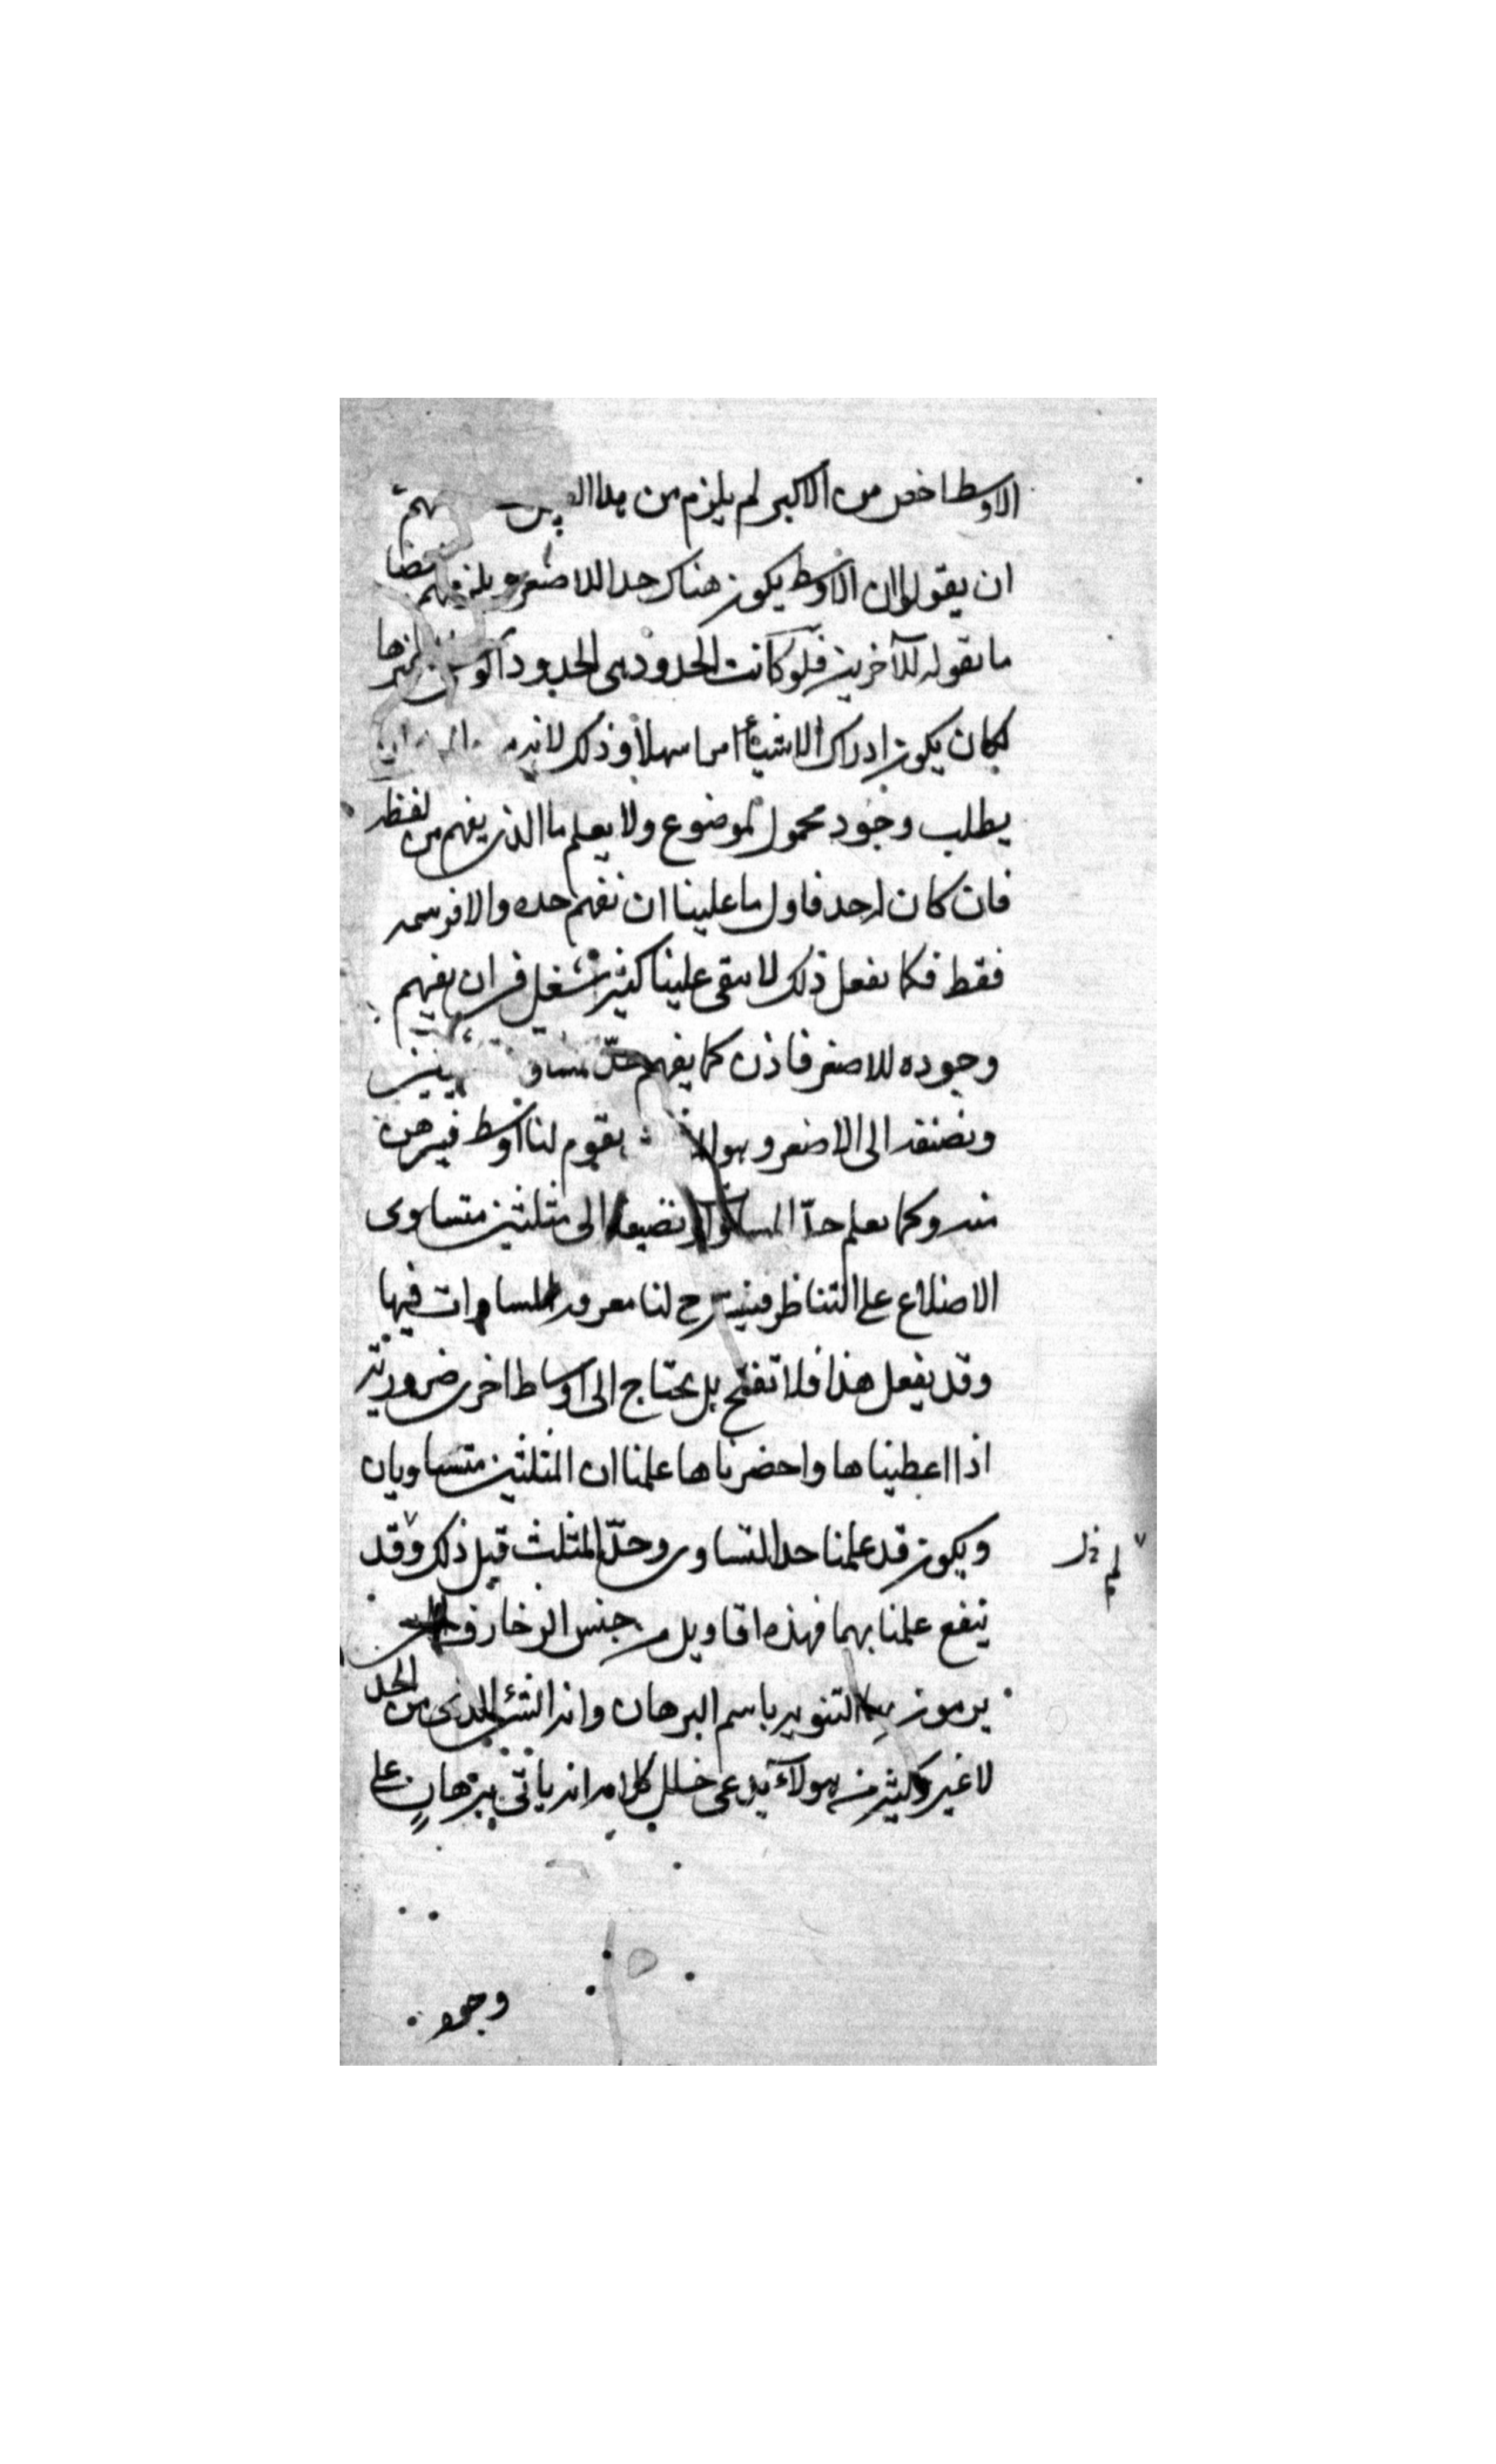 الاوسط اخص من الاكبر لم يلزم من هذا
ان يقولوا ان الاوسط يكون هناك حدا للاصغر ويلزمهم
ما نقوله للآخرين فلو كانت الحدود هى الحدود
لكان يكون ادراك الاشياء امرا سهلا وذلك لانه
يطلب وجود محمول لموضوع ولا يعلم ما الذى يفهم من لفظه
فان كان له حد فاول ما علينا ان نفهم حده والا فرسمه
فقط فكما نفعل ذلك لا يبقى علينا كثير شغل فى ان نفهم
وجوده للاصغر فاذن كما يفهم حدّ
ونضيفه الى الاصغر وهو لا يقوم لنا اوسط فيبرهن
منه وكما نعلم حدّ المساواة نضيفها الى مثلثين متساوى
الاضلاع على التناظر فينتج لنا معرفة المساوات فيها
وقد نفعل هذا فلا تنتج بل نحتاج الى اوساط اخرى ضرورية
اذا اعطيناها واحضرناها علمنا ان المثلثين متساويان
ويكون قد علمنا حد التساوى وحدّ المثلث قبل ذلك وقد
لم خل
ينفع علمنا بهما فهذه اقاويل من جنس الزخارف
يرمون بها التنويه باسم البرهان وانه الشئ الذى من الحد
لا غير وكثير من هولآء يدعى خلل كلامه انه ياتى ببرهانٍ على
وجود